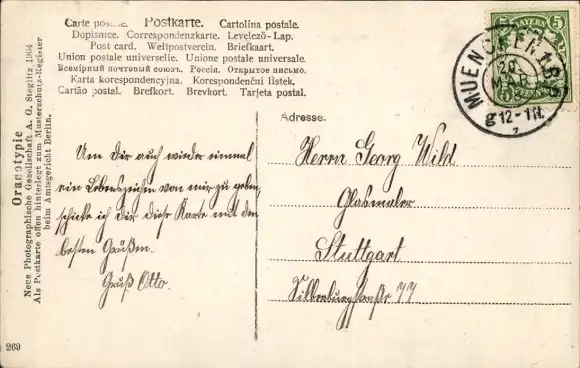 Carte postale. Postkarte. Cartolina postale.
Dopisnice. Correspondenzkarte. Levelező-Lap.
Post card. Weltpostverein. Briefkaart.
Union postale universelle. Unione postale universale.
Всемірный почтовый союзъ. Россія. Открытое письмо.
Karta korespondencyjna. Korespondenční lístek.
Cartão postal. Brefkort. Brevkort. Tarjeta postal.
5 BAYERN 5
MUENCHEN
20
MAR
g12-1N.
7
Um Dir auch wieder einmal
ein Lebenszeichen von mir zu geben,
schicke ich Dir diese Karte mit den
besten Grüßen.
Gruß Otto.
Adresse.
Herrn Georg Wild
Glasmaler
Stuttgart
Silberburgstraße 77
Oranotypie
Neue Photographische Gesellschaft A. G. Steglitz 1904
Als Postkarte offen hinterlegt zum Musterschutz-Register
beim Amtsgericht Berlin.
269